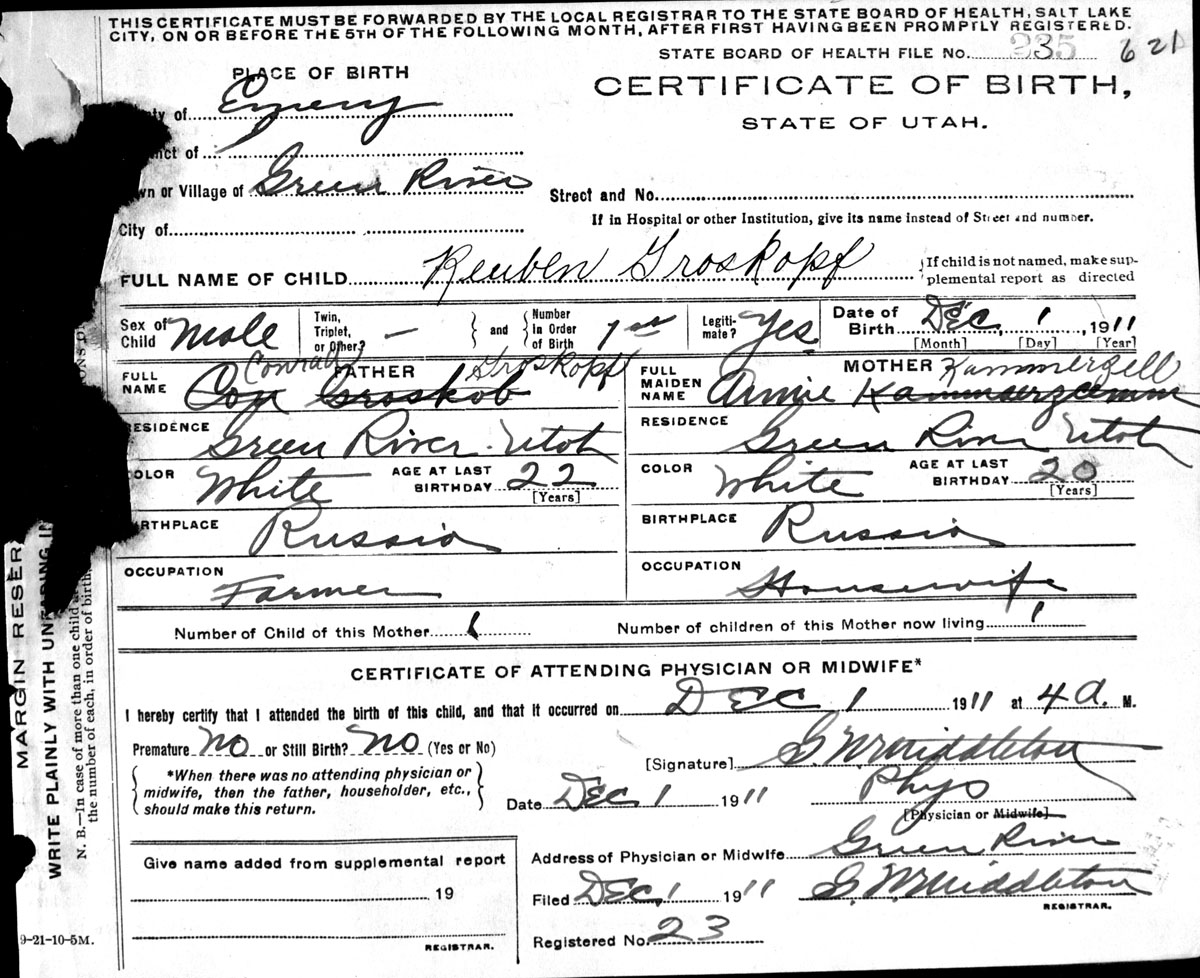 THIS CERTIFICATE MUST BE FORWARDED BY THE LOCAL REGISTRAR TO THE STATE BOARD OF HEALTH, SALT LAKE
CITY, ON OR BEFORE THE 5TH OF THE FOLLOWING MONTH, AFTER FIRST HAVING BEEN PROMPTLY REGISTERED.
STATE BOARD OF HEALTH FILE No. 235 621
PLACE OF BIRTH
CERTIFICATE OF BIRTH,
STATE OF UTAH.
ty of Emery
ict of
wn or Village of Green River
Street and No.
If in Hospital or other Institution, give its name instead of Street and number.
City of
FULL NAME OF CHILD Reuben Groskopf
{If child is not named, make sup-
plemental report as directed
Sex of Child Male
Twin, Triplet, or Other? —
and
Number In Order of Birth 1st
Legiti- mate? Yes
Date of Birth Dec. 1, 1911
[Month] [Day] [Year]
FATHER
FULL NAME Conrad Groskopf
Con Groskob
RESIDENCE Green River Utah
COLOR White
AGE AT LAST BIRTHDAY 22
[Years]
BIRTHPLACE Russia
OCCUPATION Farmer
MOTHER
FULL MAIDEN NAME Annie Kammerzell
RESIDENCE Green River Utah
COLOR White
AGE AT LAST BIRTHDAY 20
[Years]
BIRTHPLACE Russia
OCCUPATION Housewife
Number of Child of this Mother 1
Number of children of this Mother now living 1
CERTIFICATE OF ATTENDING PHYSICIAN OR MIDWIFE*
I hereby certify that I attended the birth of this child, and that it occurred on Dec 1 1911 at 4 a. M.
Premature No or Still Birth? No (Yes or No)
*When there was no attending physician or
midwife, then the father, householder, etc.,
should make this return.
[Signature] G. W. Middleton
Phys
Date Dec 1 1911
[Physician or Midwife]
Address of Physician or Midwife Green River
Filed Dec. 1 1911 G. W. Middleton
REGISTRAR.
Registered No. 23
Give name added from supplemental report
19
REGISTRAR.
9-21-10-5M.
MARGIN RESER
WRITE PLAINLY WITH UNFADING IN
N. B.—In case of more than one child a
the number of each, in order of birth,
ONS D